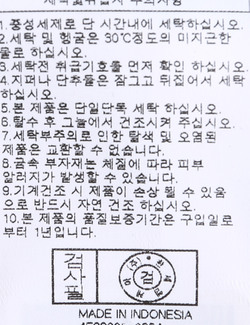 세탁및취급시 주의사항
1.중성세제로 단 시간내에 세탁하십시오.
2.세탁 및 헹굼은 30℃정도의 미지근한
물로 하십시오.
3.세탁전 취급기호를 먼저 확인 하십시오
4.지퍼나 단추등은 잠그고 뒤집어서 세탁
하십시오.
5.본 제품은 단일단독 세탁 하십시오.
6.탈수 후 그늘에서 건조시켜 주십시오.
7.세탁부주의로 인한 탈색 및 오염된
제품은 교환할 수 없습니다.
8.금속 부자재는 체질에 따라 피부
알러지가 발생할 수 있습니다.
9.기계건조 시 제품이 손상 될 수 있음
으로 반드시 자연 건조 하십시오.
10.본 제품의 품질보증기간은 구입일로
부터 1년입니다.
검사필
검
MADE IN INDONESIA